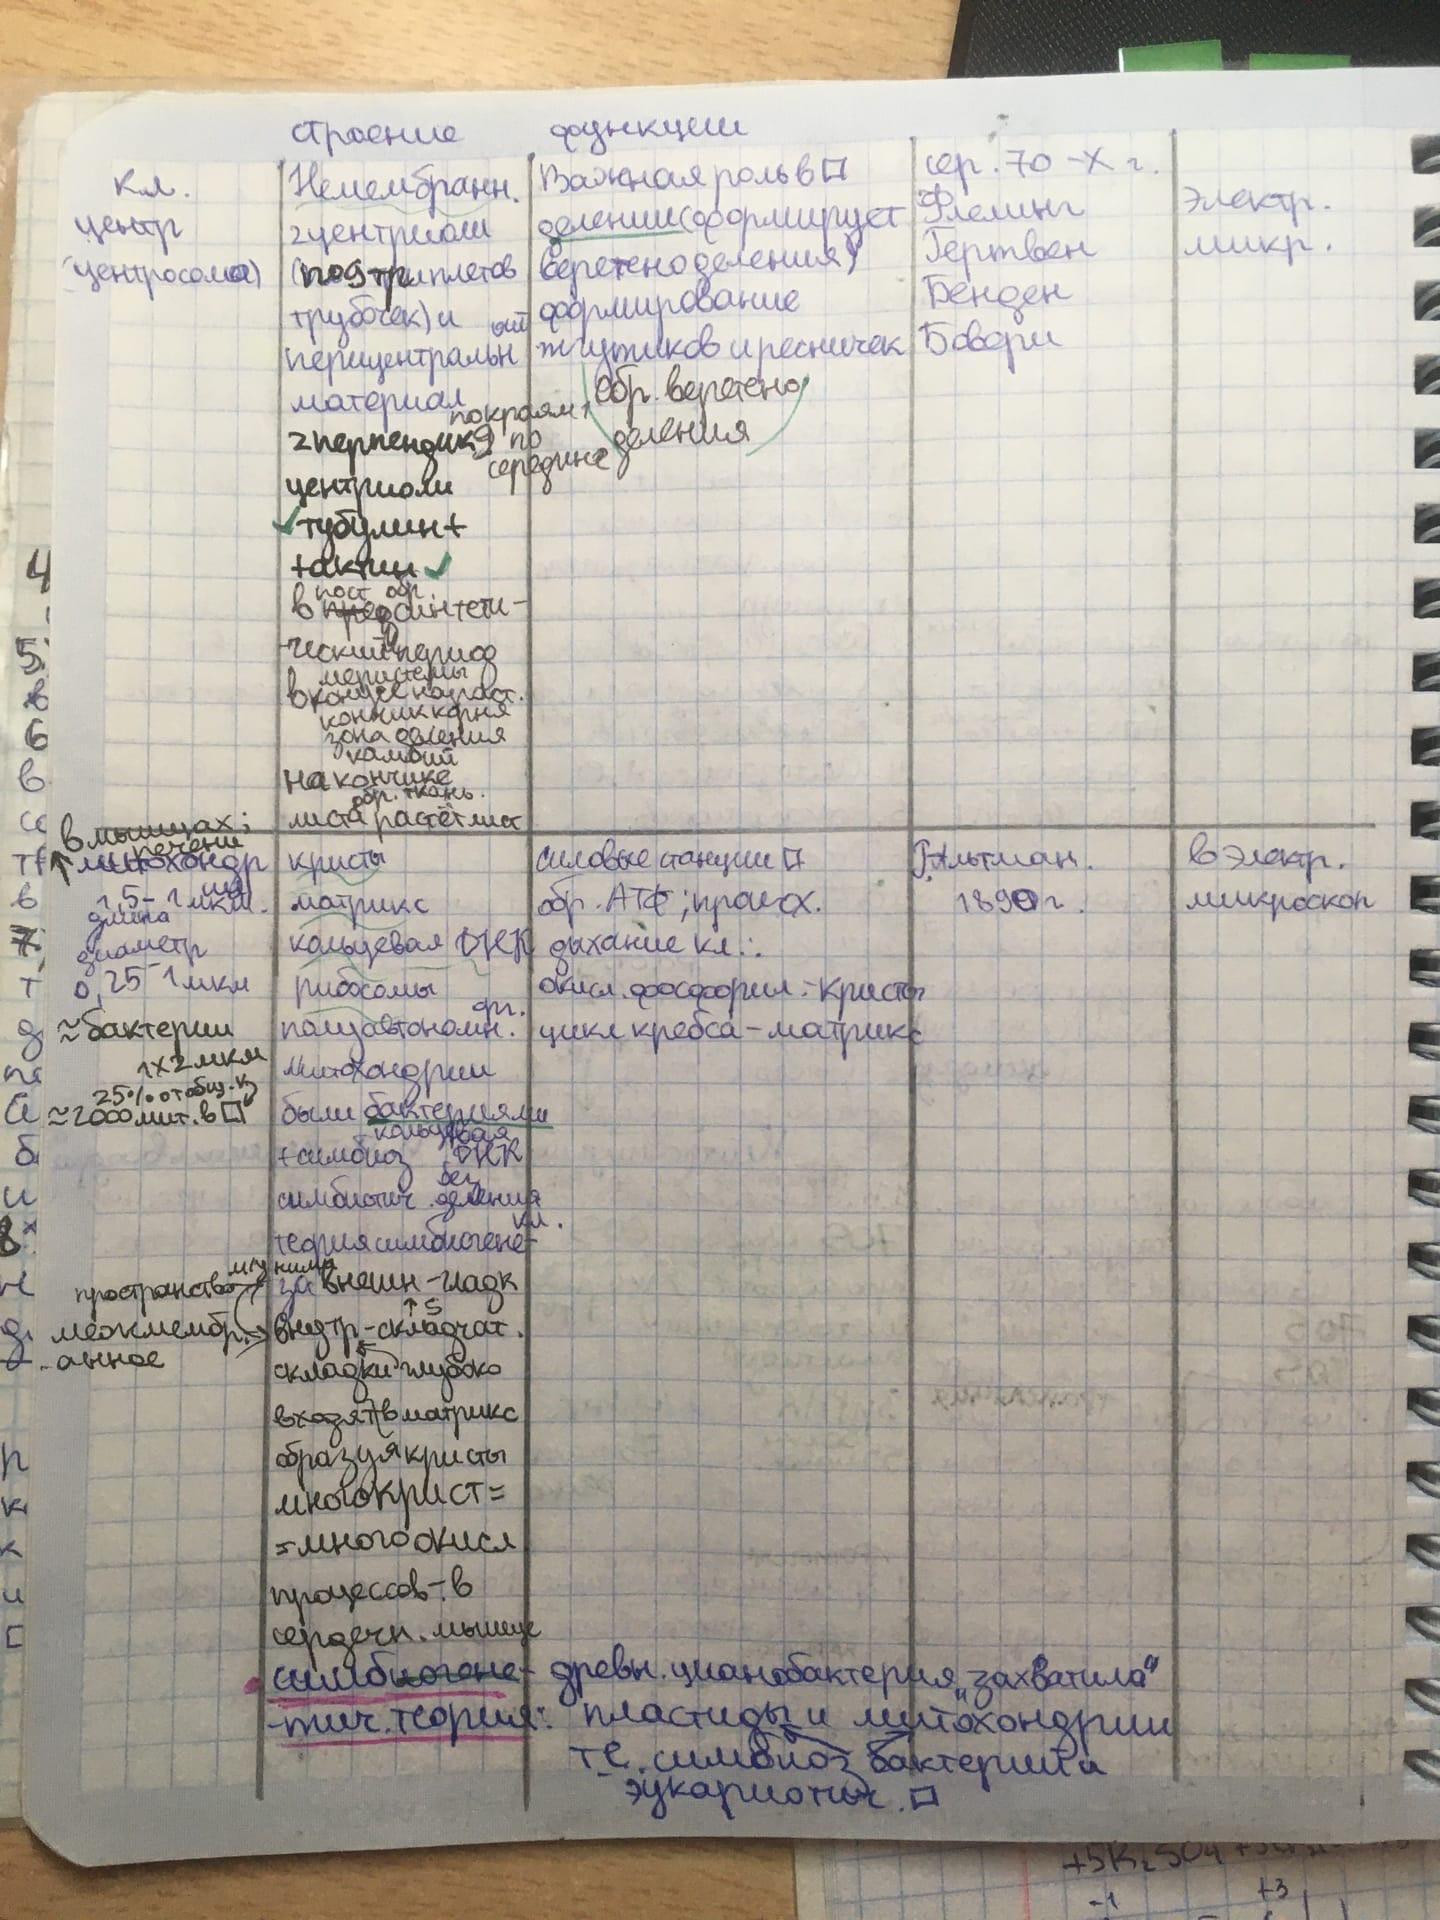 строение функции
кл.
центр
(центросома)
Немембранн.
2 центриоли
(по 9 триплетов
трубочек) и
перицентральн
материал
2 перпендик
по краям,
9 по
середине
центриоли
тубулин +
+ актин
пост обр.
в предсинтети-
ческий период
меристемы
в конусе нараст.
кончик корня
зона деления
камбий
на кончике
обр. ткань.
листа растёт лист
Важная роль в □
делении (формирует
веретено деления)
формирование
жгутиков и ресничек
обр. веретено
деления
сер. 70-х г.
Флеминг
Гертвен
Бенден
Бовери
электр.
микр.
в мышцах;
печени
↑ митохондр
ии
1,5-1 мкм.
длина
диаметр
0,25-1 мкм
≈ бактерии
1x2 мкм
25% от общ. к
≈ 2000 мит. в □
пространство
м/у ними
межмембр.
анное
кристы
матрикс
кольцевая ДНК
рибосомы
полуавтономн.
митохондрии
были бактериями
кольцевая
+ симбиоз ДНК
без
симбиотич. деления
кл.
теория симбиогене-
за внешн - гладк
↑ S
внутр - складчат.
складки глубоко
входят в матрикс
образуя кристы
много крист =
= много окисл
процессов - в
сердечн. мышце
силовые станции □
обр. АТФ; происх.
дыхание кл.:
окисл. фосфорил. - кристы
цикл кребса - матрикс
Р. Альтман.
1890 г.
в электр.
микроскоп
симбиогене- древн. цианобактерия „захватила"
-тич. теория: пластиды и митохондрии
т.е. симбиоз бактерий и
эукариотич. □
+5K₂SO₄
-1 +3